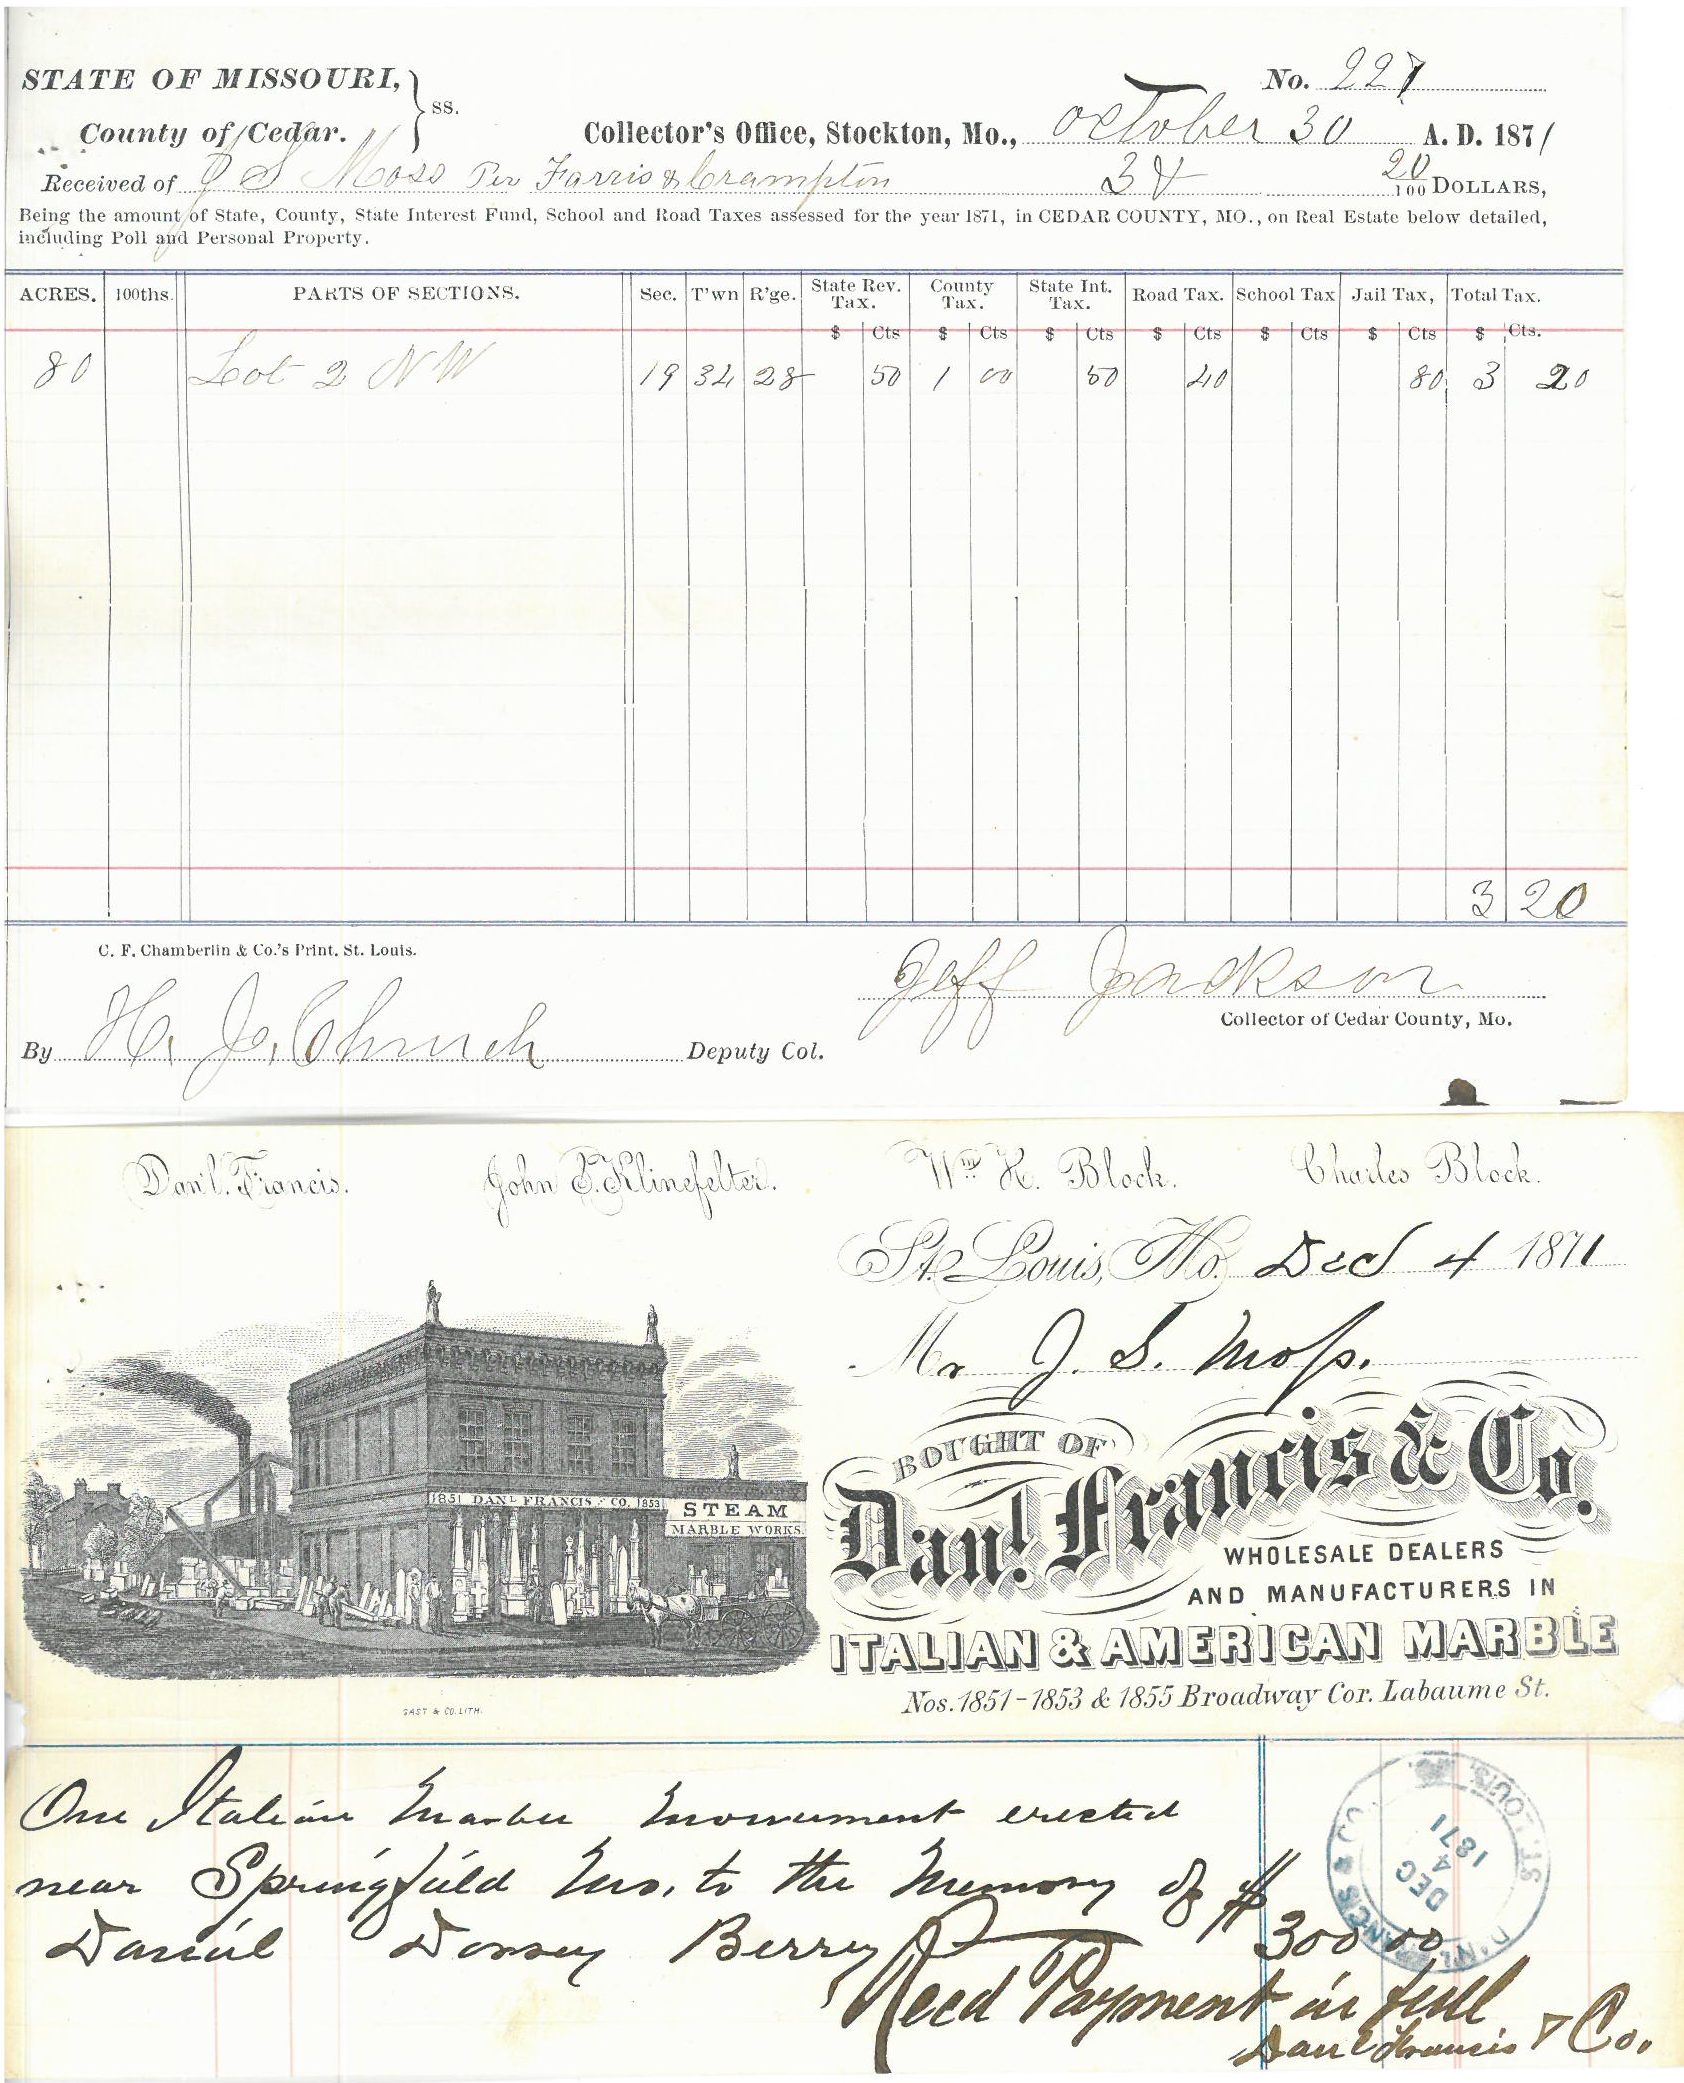 STATE OF MISSOURI,
County of Cedar.
ss.
No. 227
Collector's Office, Stockton, Mo., October 30 A. D. 1871
Received of J S Moss Per Farris & Crampton 3 & 20/100 DOLLARS,
Being the amount of State, County, State Interest Fund, School and Road Taxes assessed for the year 1871, in CEDAR COUNTY, MO., on Real Estate below detailed,
including Poll and Personal Property.
ACRES. 100ths. PARTS OF SECTIONS. Sec. T'wn R'ge. State Rev. Tax. County Tax. State Int. Tax. Road Tax. School Tax Jail Tax, Total Tax.
$ Cts $ Cts $ Cts $ Cts $ Cts $ Cts $ Cts.
80 Lot 2 NW 19 34 28 50 1 00 50 40 80 3 20
3 20
C. F. Chamberlin & Co.'s Print. St. Louis.
Jeff Jackson
Collector of Cedar County, Mo.
By H. J. Church Deputy Col.
Dan'l. Francis. John S. Klinefelter. Wm H. Block. Charles Block.
St. Louis, Mo. Dec 4 1871
Mr J. S. Moss.
BOUGHT OF
Danl. Francis & Co.
WHOLESALE DEALERS
AND MANUFACTURERS IN
ITALIAN & AMERICAN MARBLE
Nos. 1851-1853 & 1855 Broadway Cor. Labaume St.
1851 DANL FRANCIS & CO. 1853
STEAM
MARBLE WORKS.
GAST & CO. LITH.
One Italian Marble Monument erected
near Springfield Mo. to the Memory of
Daniel Dorsey Berry $300 00
Recd Payment in full
Danl Francis & Co.
D'NL FRANCIS & CO. ST. LOUIS.
DEC
4
1871